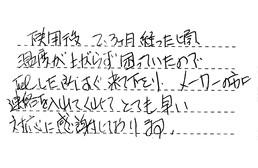 使用後 2、3ヶ月経った頃
温度が上がらず困っていたので
TELした所すぐ来て下さり メーカーの方に
連絡を入れてくれて とても早い
対応に感謝しております。